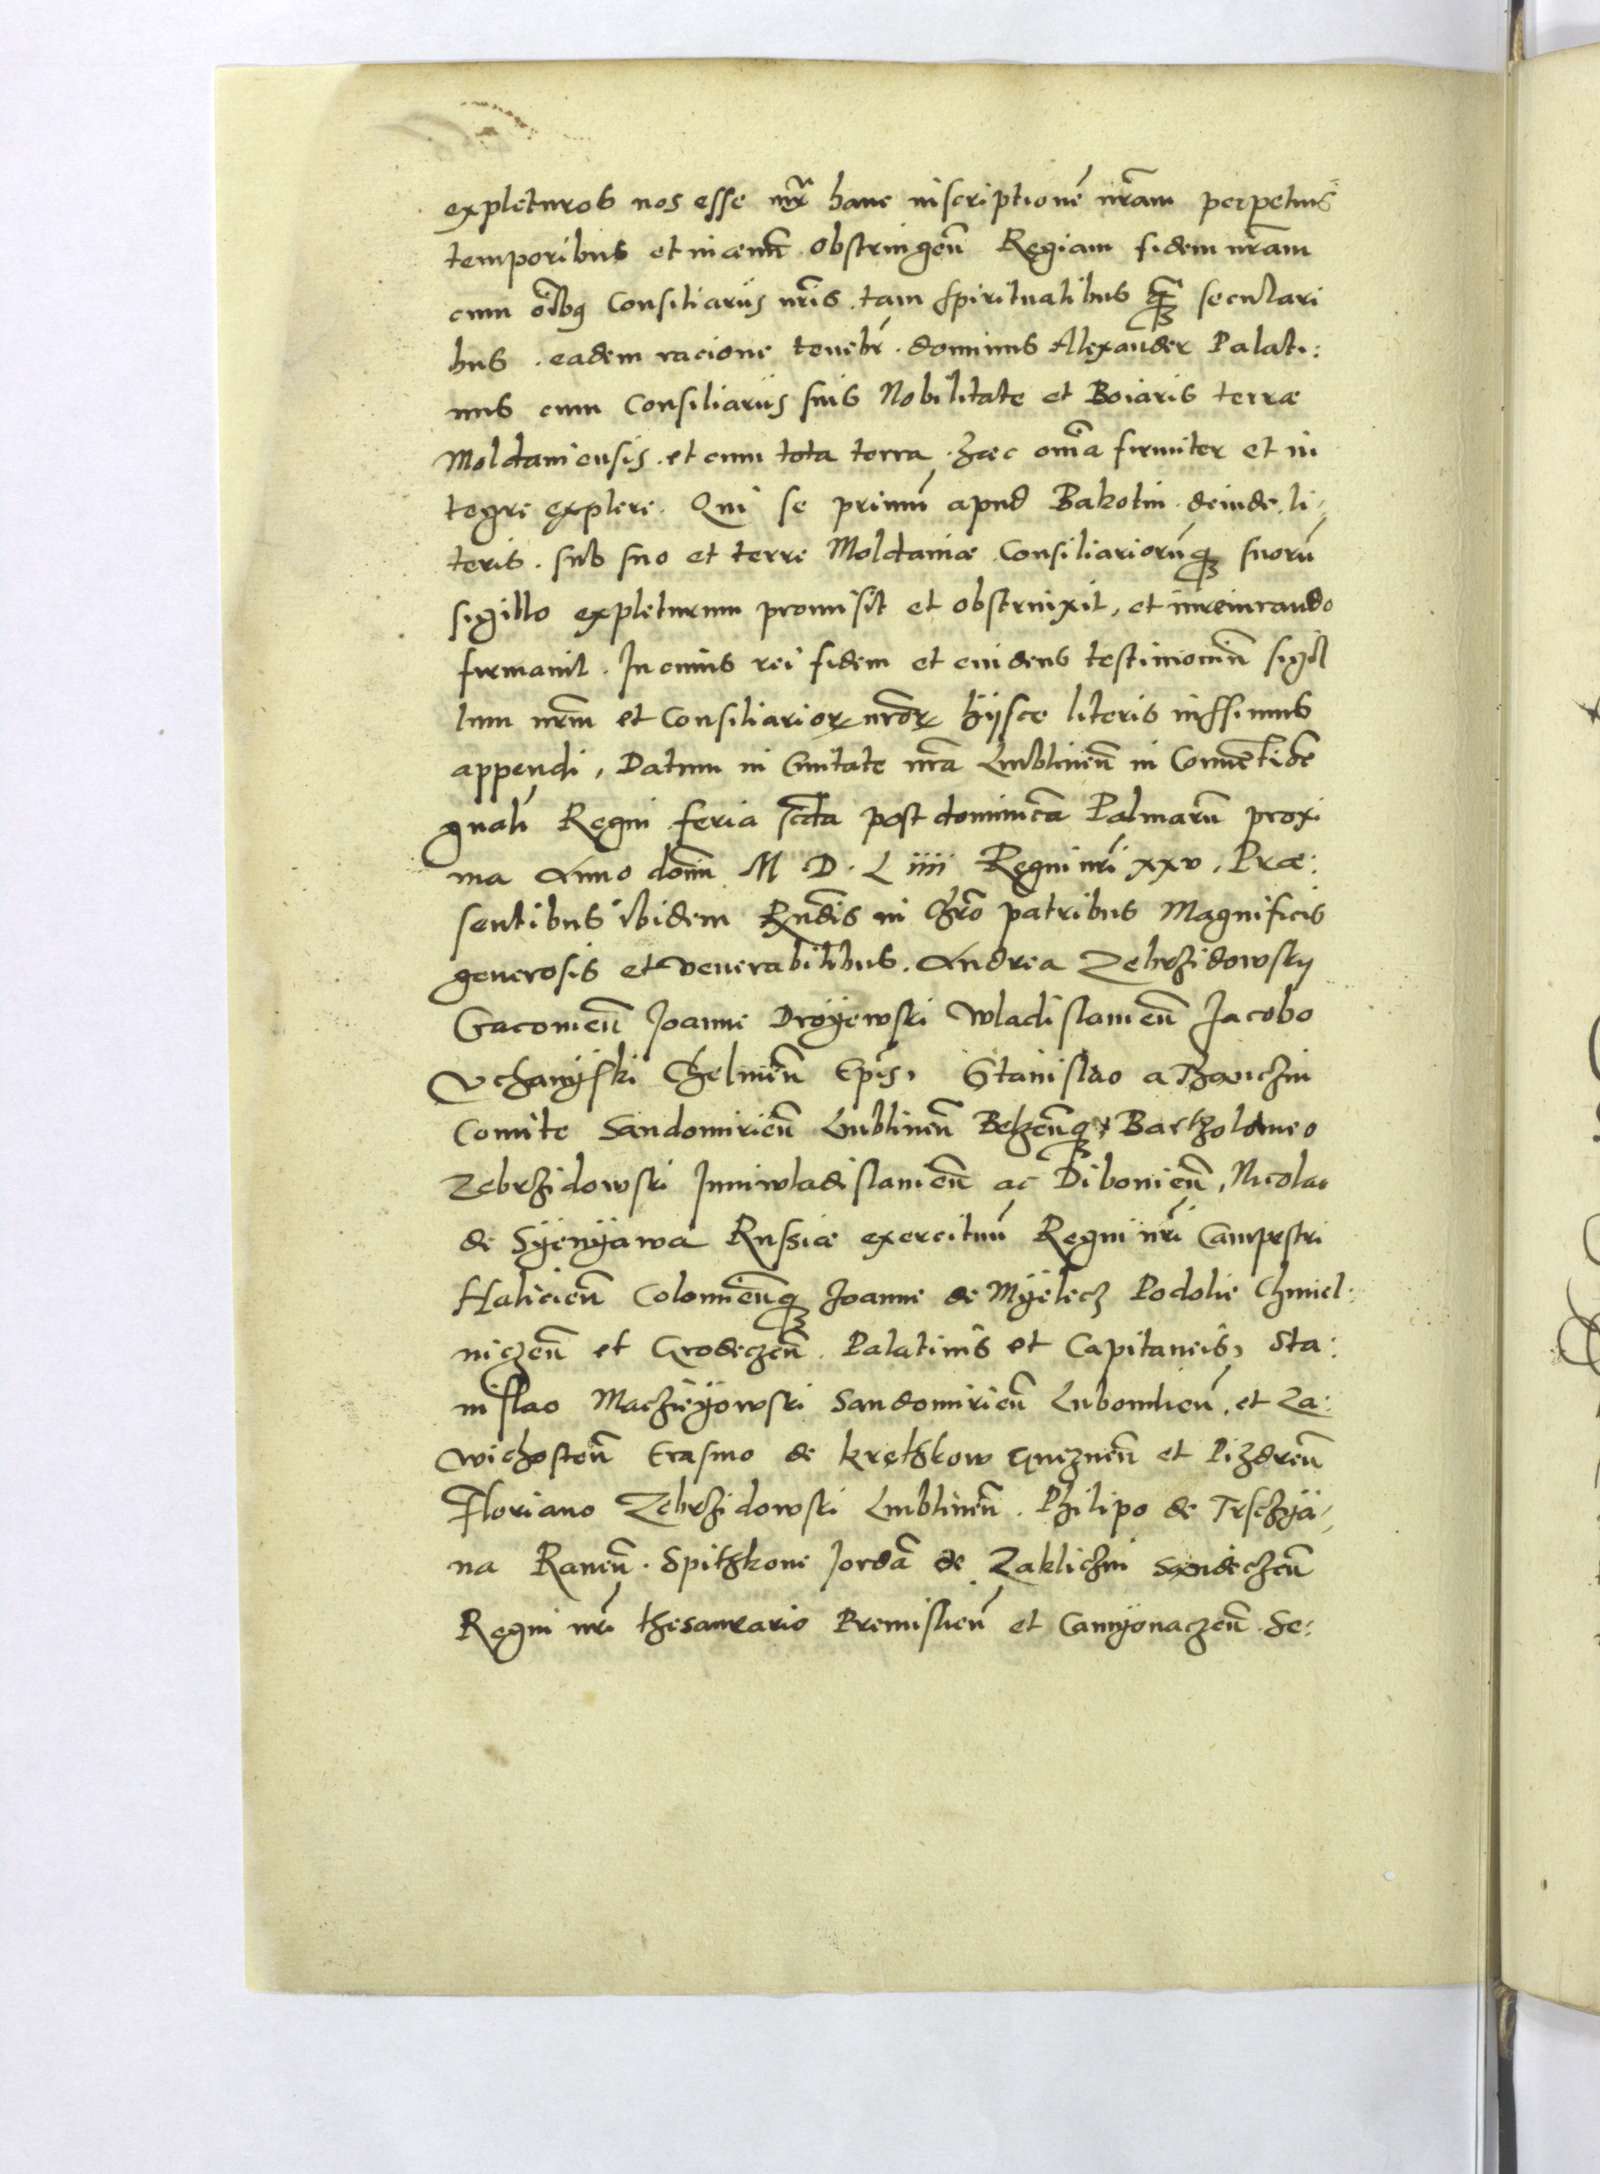 expleturos nos esse iuxta hanc inscriptionē nr̄am perpetuis
temporibus et in aeuū obstringeñ Regiam fidem nr̄am
cum oībq Consiliariis nr̄is tam spiritualibus q̄ȝ seculari
bus . eadem racione tenebr̄ . dominus Alexander Palati:
nus cum Consiliariis suis Nobilitate et Boiaris terræ
Moldauiensis . et cum tota terra . Hæc oīa firmiter et in
tegre explere . Qui se primū apud Bakotin . deinde . li-
teris . sub suo et terre Moldauiæ Consiliariorūqȝ suorū
sigillo expleturum promisit et obstrinxit, et iureiurando
firmauit . In cuius rei fidem et euidens testimoniū sigil
lum nr̄m et Consiliariorꝝ nr̄orꝝ hijsce literis iussimus
appendi, Datum in Ciuitate nr̄a Lublineñ in Conuentiōe
gnali Regni feria post dominicā Palmarū proxi
ma Anno domi M D . L iiii Regni nr̄i xxv . Præ:
sentibus ibidem Rndis in chro patribus Magnificis
generosis et venerabilibus . Andrea Zebrzidowsky
Cracouieñ Joanne Droyewski Wladislauieñ Jacobo
Vchanyski Chelmeñ Epis, Stanislao a Thanczin
Comite Sandomirieñ Lublineñ Belzeñqȝ Bartholomeo
Zebrzidowski Juniwladislauieñ ac Dibouieñ, Nicolao
de Syenyawa Russiæ exercituū Regni nr̄i Campestri
Halicieñ Colomieñqȝ Joanne de Myelecz Podolie Chmiel:
niczeñ et Grodeczeñ . Palatinis et Capitaneis, Sta:
nislao Maczieyowski Sandomirieñ Lubomlieñ . et Za:
wichosteñ Erasmo de Kretzkow Gnezneñ et Pizdreñ
Floriano Zebrzidowski Lublineñ . Philipo de Trschya-
na Raueñ . Spitzkone Jordā de Zakliczin Sandeczeñ
Regni nr̄i thesaurario Premislieñ et Camyonaczeñ . Se: